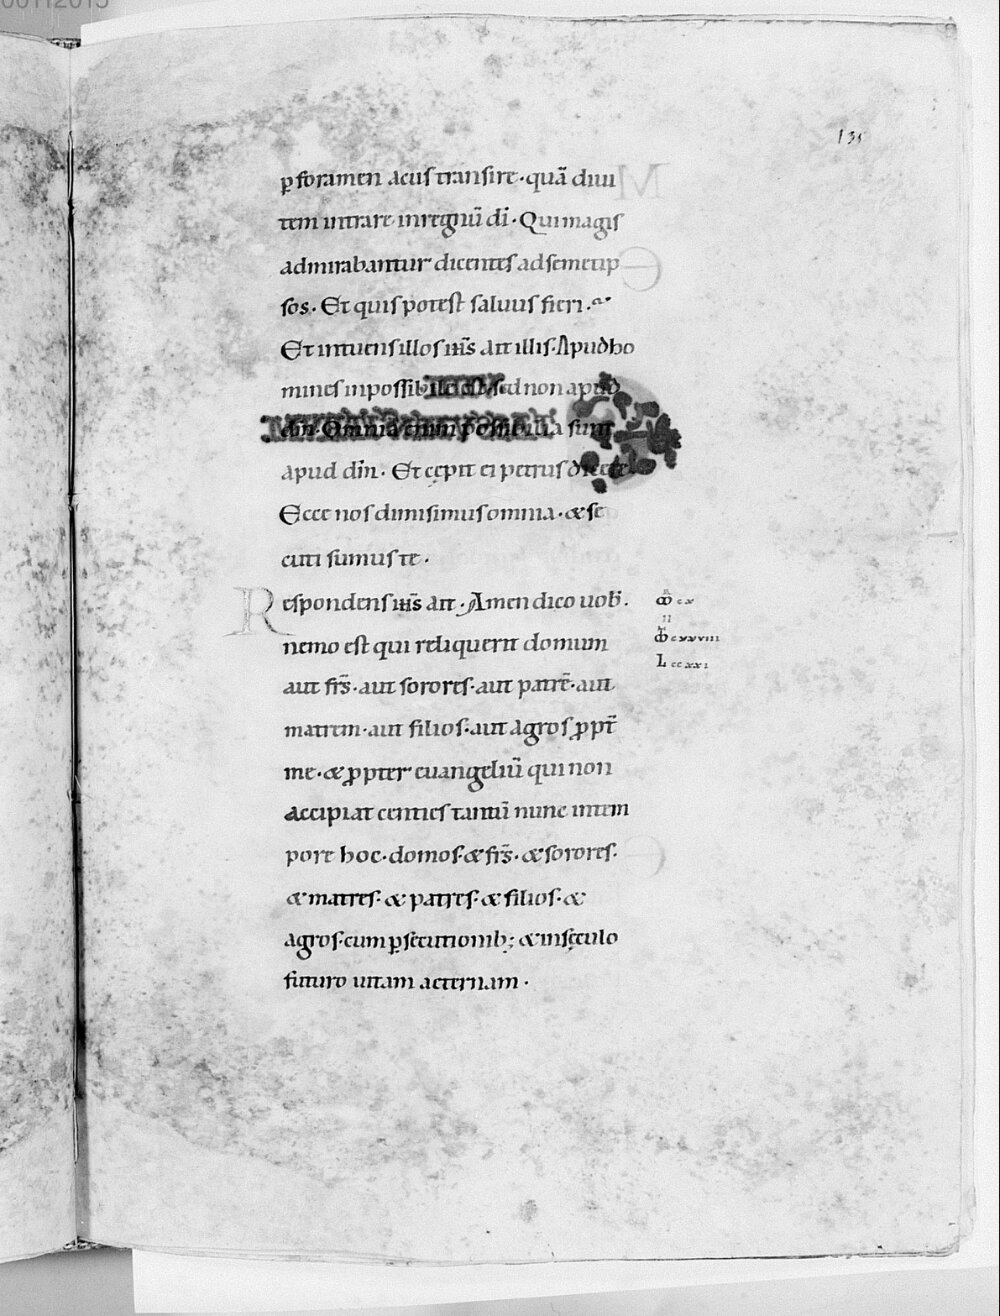 135
ꝑ foramen acus transire · quā diui
tem intrare in regnū dī · Qui magis
admirabantur dicentes ad semetip
sos · Et quis potest saluus fieri ·
Et intuens illos ihs̄ ait illis · Apud ho
mines inpossibile est sed non apud
dm̄ · Omnia enim possibilia sunt
apud dm̄ · Et cępit ei petrus dicere ·
Ecce nos dimisimus omnia · & se
cuti sumus te ·
Respondens ihs̄ ait · Amen dico uob̄ ·
nemo est qui reliquerit domum
aut frs̄ · aut sorores · aut patrē · aut
matrem · aut filios · aut agros ꝓpt̄
me · & ꝓpter euangeliū qui non
accipiat centies tantū nunc in tem
pore hoc · domos · & frs̄ · & sorores ·
& matres · & patres · & filios · &
agros · cum ꝑsecutionib; & in sęculo
futuro uitam aeternam ·